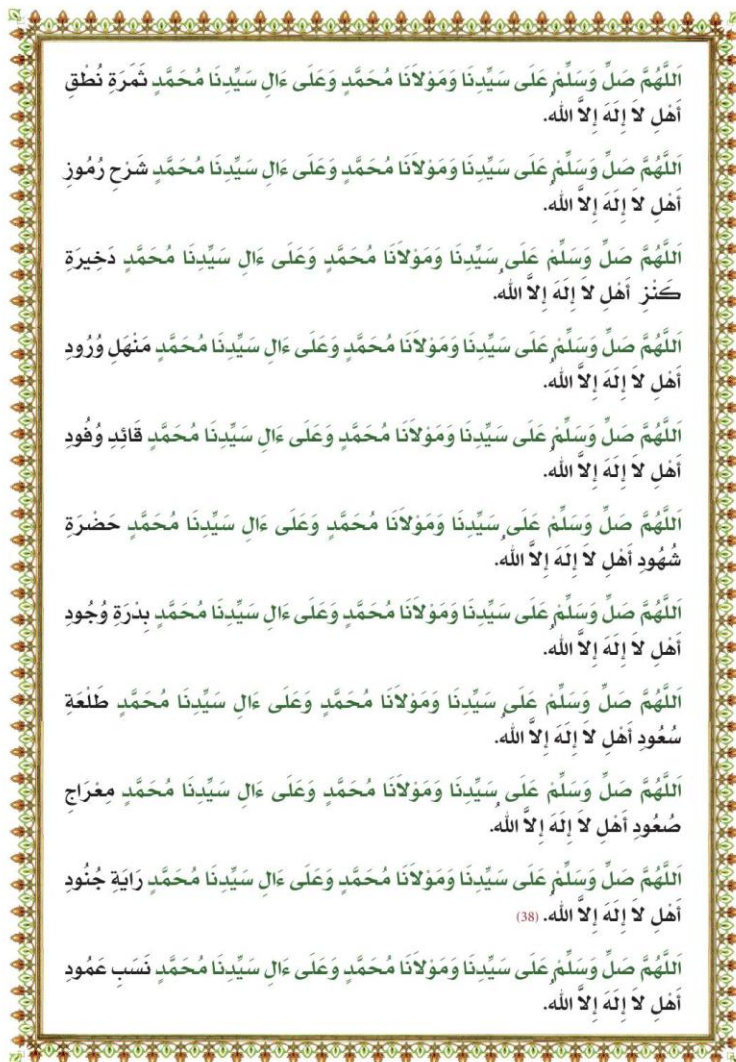 اَللَّهُمَّ صَلِّ وَسَلِّمْ عَلَى سَيِّدِنَا وَمَوْلاَنَا مُحَمَّدٍ وَعَلَى ءَالِ سَيِّدِنَا مُحَمَّدٍ ثَمَرَةِ نُطْقِ
أَهْلِ لاَ إِلَهَ إِلاَّ اللهُ.
اَللَّهُمَّ صَلِّ وَسَلِّمْ عَلَى سَيِّدِنَا وَمَوْلاَنَا مُحَمَّدٍ وَعَلَى ءَالِ سَيِّدِنَا مُحَمَّدٍ شَرْحِ رُمُوزِ
أَهْلِ لاَ إِلَهَ إِلاَّ اللهُ.
اَللَّهُمَّ صَلِّ وَسَلِّمْ عَلَى سَيِّدِنَا وَمَوْلاَنَا مُحَمَّدٍ وَعَلَى ءَالِ سَيِّدِنَا مُحَمَّدٍ دَخِيرَةِ
كَنْزِ أَهْلِ لاَ إِلَهَ إِلاَّ اللهُ.
اَللَّهُمَّ صَلِّ وَسَلِّمْ عَلَى سَيِّدِنَا وَمَوْلاَنَا مُحَمَّدٍ وَعَلَى ءَالِ سَيِّدِنَا مُحَمَّدٍ مَنْهَلِ وُرُودِ
أَهْلِ لاَ إِلَهَ إِلاَّ اللهُ.
اَللَّهُمَّ صَلِّ وَسَلِّمْ عَلَى سَيِّدِنَا وَمَوْلاَنَا مُحَمَّدٍ وَعَلَى ءَالِ سَيِّدِنَا مُحَمَّدٍ قَائِدِ وُفُودِ
أَهْلِ لاَ إِلَهَ إِلاَّ اللهُ.
اَللَّهُمَّ صَلِّ وَسَلِّمْ عَلَى سَيِّدِنَا وَمَوْلاَنَا مُحَمَّدٍ وَعَلَى ءَالِ سَيِّدِنَا مُحَمَّدٍ حَضْرَةِ
شُهُودِ أَهْلِ لاَ إِلَهَ إِلاَّ اللهُ.
اَللَّهُمَّ صَلِّ وَسَلِّمْ عَلَى سَيِّدِنَا وَمَوْلاَنَا مُحَمَّدٍ وَعَلَى ءَالِ سَيِّدِنَا مُحَمَّدٍ بِدْرَةِ وُجُودِ
أَهْلِ لاَ إِلَهَ إِلاَّ اللهُ.
اَللَّهُمَّ صَلِّ وَسَلِّمْ عَلَى سَيِّدِنَا وَمَوْلاَنَا مُحَمَّدٍ وَعَلَى ءَالِ سَيِّدِنَا مُحَمَّدٍ طَلْعَةِ
سُعُودِ أَهْلِ لاَ إِلَهَ إِلاَّ اللهُ.
اَللَّهُمَّ صَلِّ وَسَلِّمْ عَلَى سَيِّدِنَا وَمَوْلاَنَا مُحَمَّدٍ وَعَلَى ءَالِ سَيِّدِنَا مُحَمَّدٍ مِعْرَاجِ
صُعُودِ أَهْلِ لاَ إِلَهَ إِلاَّ اللهُ.
اَللَّهُمَّ صَلِّ وَسَلِّمْ عَلَى سَيِّدِنَا وَمَوْلاَنَا مُحَمَّدٍ وَعَلَى ءَالِ سَيِّدِنَا مُحَمَّدٍ رَايَةِ جُنُودِ
أَهْلِ لاَ إِلَهَ إِلاَّ اللهُ. (38)
اَللَّهُمَّ صَلِّ وَسَلِّمْ عَلَى سَيِّدِنَا وَمَوْلاَنَا مُحَمَّدٍ وَعَلَى ءَالِ سَيِّدِنَا مُحَمَّدٍ نَسَبِ عَمُودِ
أَهْلِ لاَ إِلَهَ إِلاَّ اللهُ.